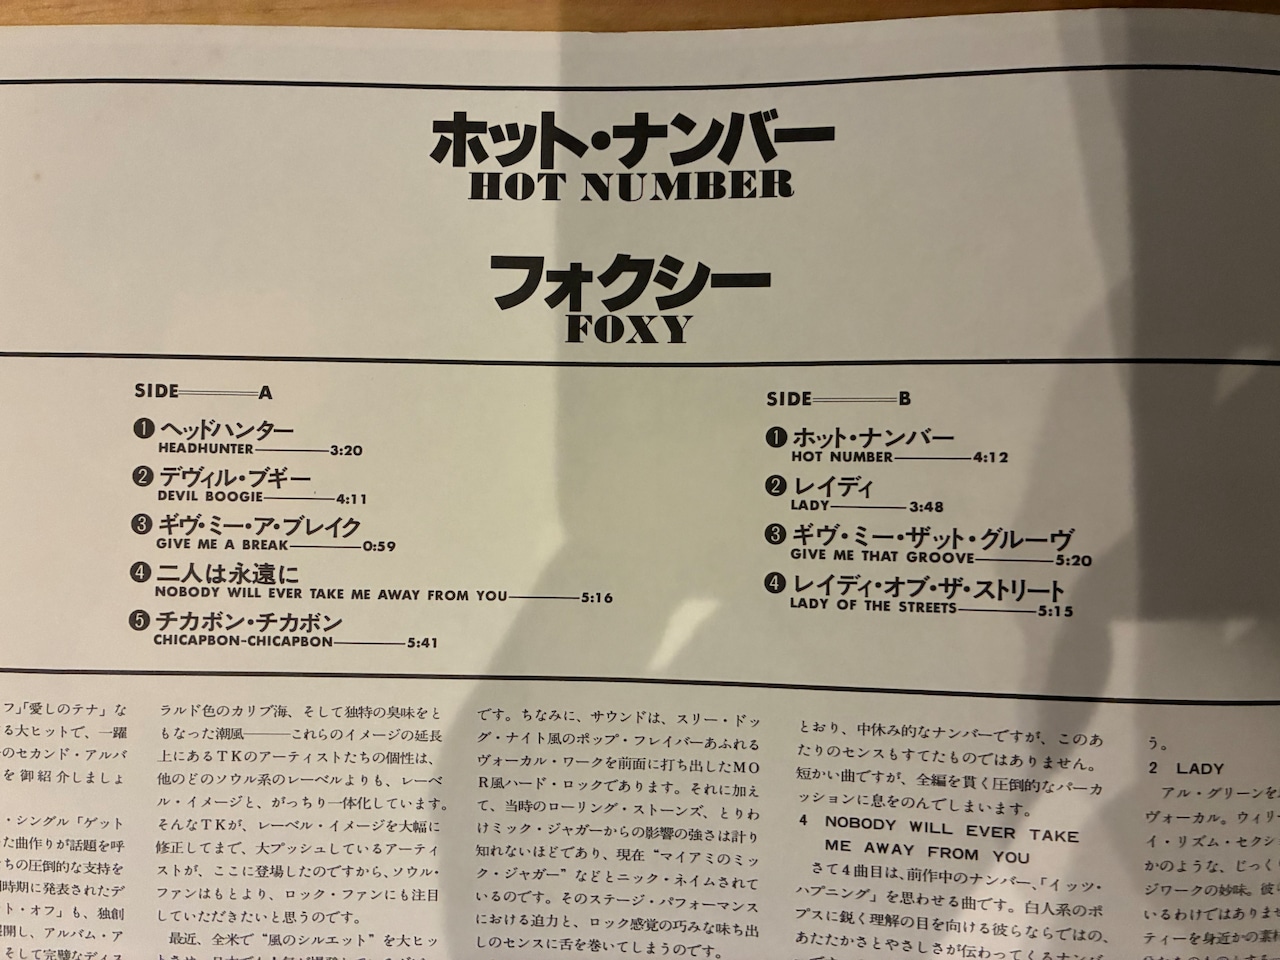 ホット・ナンバー
HOT NUMBER
フォクシー
FOXY
SIDE A
❶ヘッドハンター
HEADHUNTER 3:20
❷デヴィル・ブギー
DEVIL BOOGIE 4:11
❸ギヴ・ミー・ア・ブレイク
GIVE ME A BREAK 0:59
❹二人は永遠に
NOBODY WILL EVER TAKE ME AWAY FROM YOU 5:16
❺チカボン・チカボン
CHICAPBON-CHICAPBON 5:41
SIDE B
❶ホット・ナンバー
HOT NUMBER 4:12
❷レイディ
LADY 3:48
❸ギヴ・ミー・ザット・グルーヴ
GIVE ME THAT GROOVE 5:20
❹レイディ・オブ・ザ・ストリート
LADY OF THE STREETS 5:15
フ」「愛しのテナ」な
る大ヒットで、一躍
のセカンド・アルバ
を御紹介しましょ
・シングル「ゲット
た曲作りが話題を呼
ちの圧倒的な支持を
時期に発表されたデ
ト・オフ」も、独創
開し、アルバム・ア
そして完璧なディス
ラルド色のカリブ海、そして独特の臭味をと
もなった潮風―――これらのイメージの延長
上にあるTKのアーティストたちの個性は、
他のどのソウル系のレーベルよりも、レーベ
ル・イメージと、がっちり一体化しています。
そんなTKが、レーベル・イメージを大幅に
修正してまで、大プッシュしているアーティ
ストが、ここに登場したのですから、ソウル・
ファンはもとより、ロック・ファンにも注目
していただきたいと思うのです。
最近、全米で“風のシルエット”を大ヒッ
です。ちなみに、サウンドは、スリー・ドッ
グ・ナイト風のポップ・フレイバーあふれる
ヴォーカル・ワークを前面に打ち出したMO
R風ハード・ロックであります。それに加え
て、当時のローリング・ストーンズ、とりわ
けミック・ジャガーからの影響の強さは計り
知れないほどであり、現在“マイアミのミッ
ク・ジャガー”などとニック・ネイムされて
いるのです。そのステージ・パフォーマンス
における迫力と、ロック感覚の巧みな味ち出
しのセンスに舌を巻いてしまうのです。
とおり、中休み的なナンバーですが、このあ
たりのセンスもすてたものではありません。
短かい曲ですが、全編を貫く圧倒的なパーカ
ッションに息をのんでしまいます。
4 NOBODY WILL EVER TAKE
ME AWAY FROM YOU
さて4曲目は、前作中のナンバー、「イッツ・
ハプニング」を思わせる曲です。白人系のポ
プスに鋭く理解の目を向ける彼らならではの、
あたたかさとやさしさが伝わってくるナンバ
う。
2 LADY
アル・グリーンを
ヴォーカル。ウィリー
イ・リズム・セクシ
かのような、じっく
ジワークの妙味。彼
いるわけではありませ
ティーを身近かの素